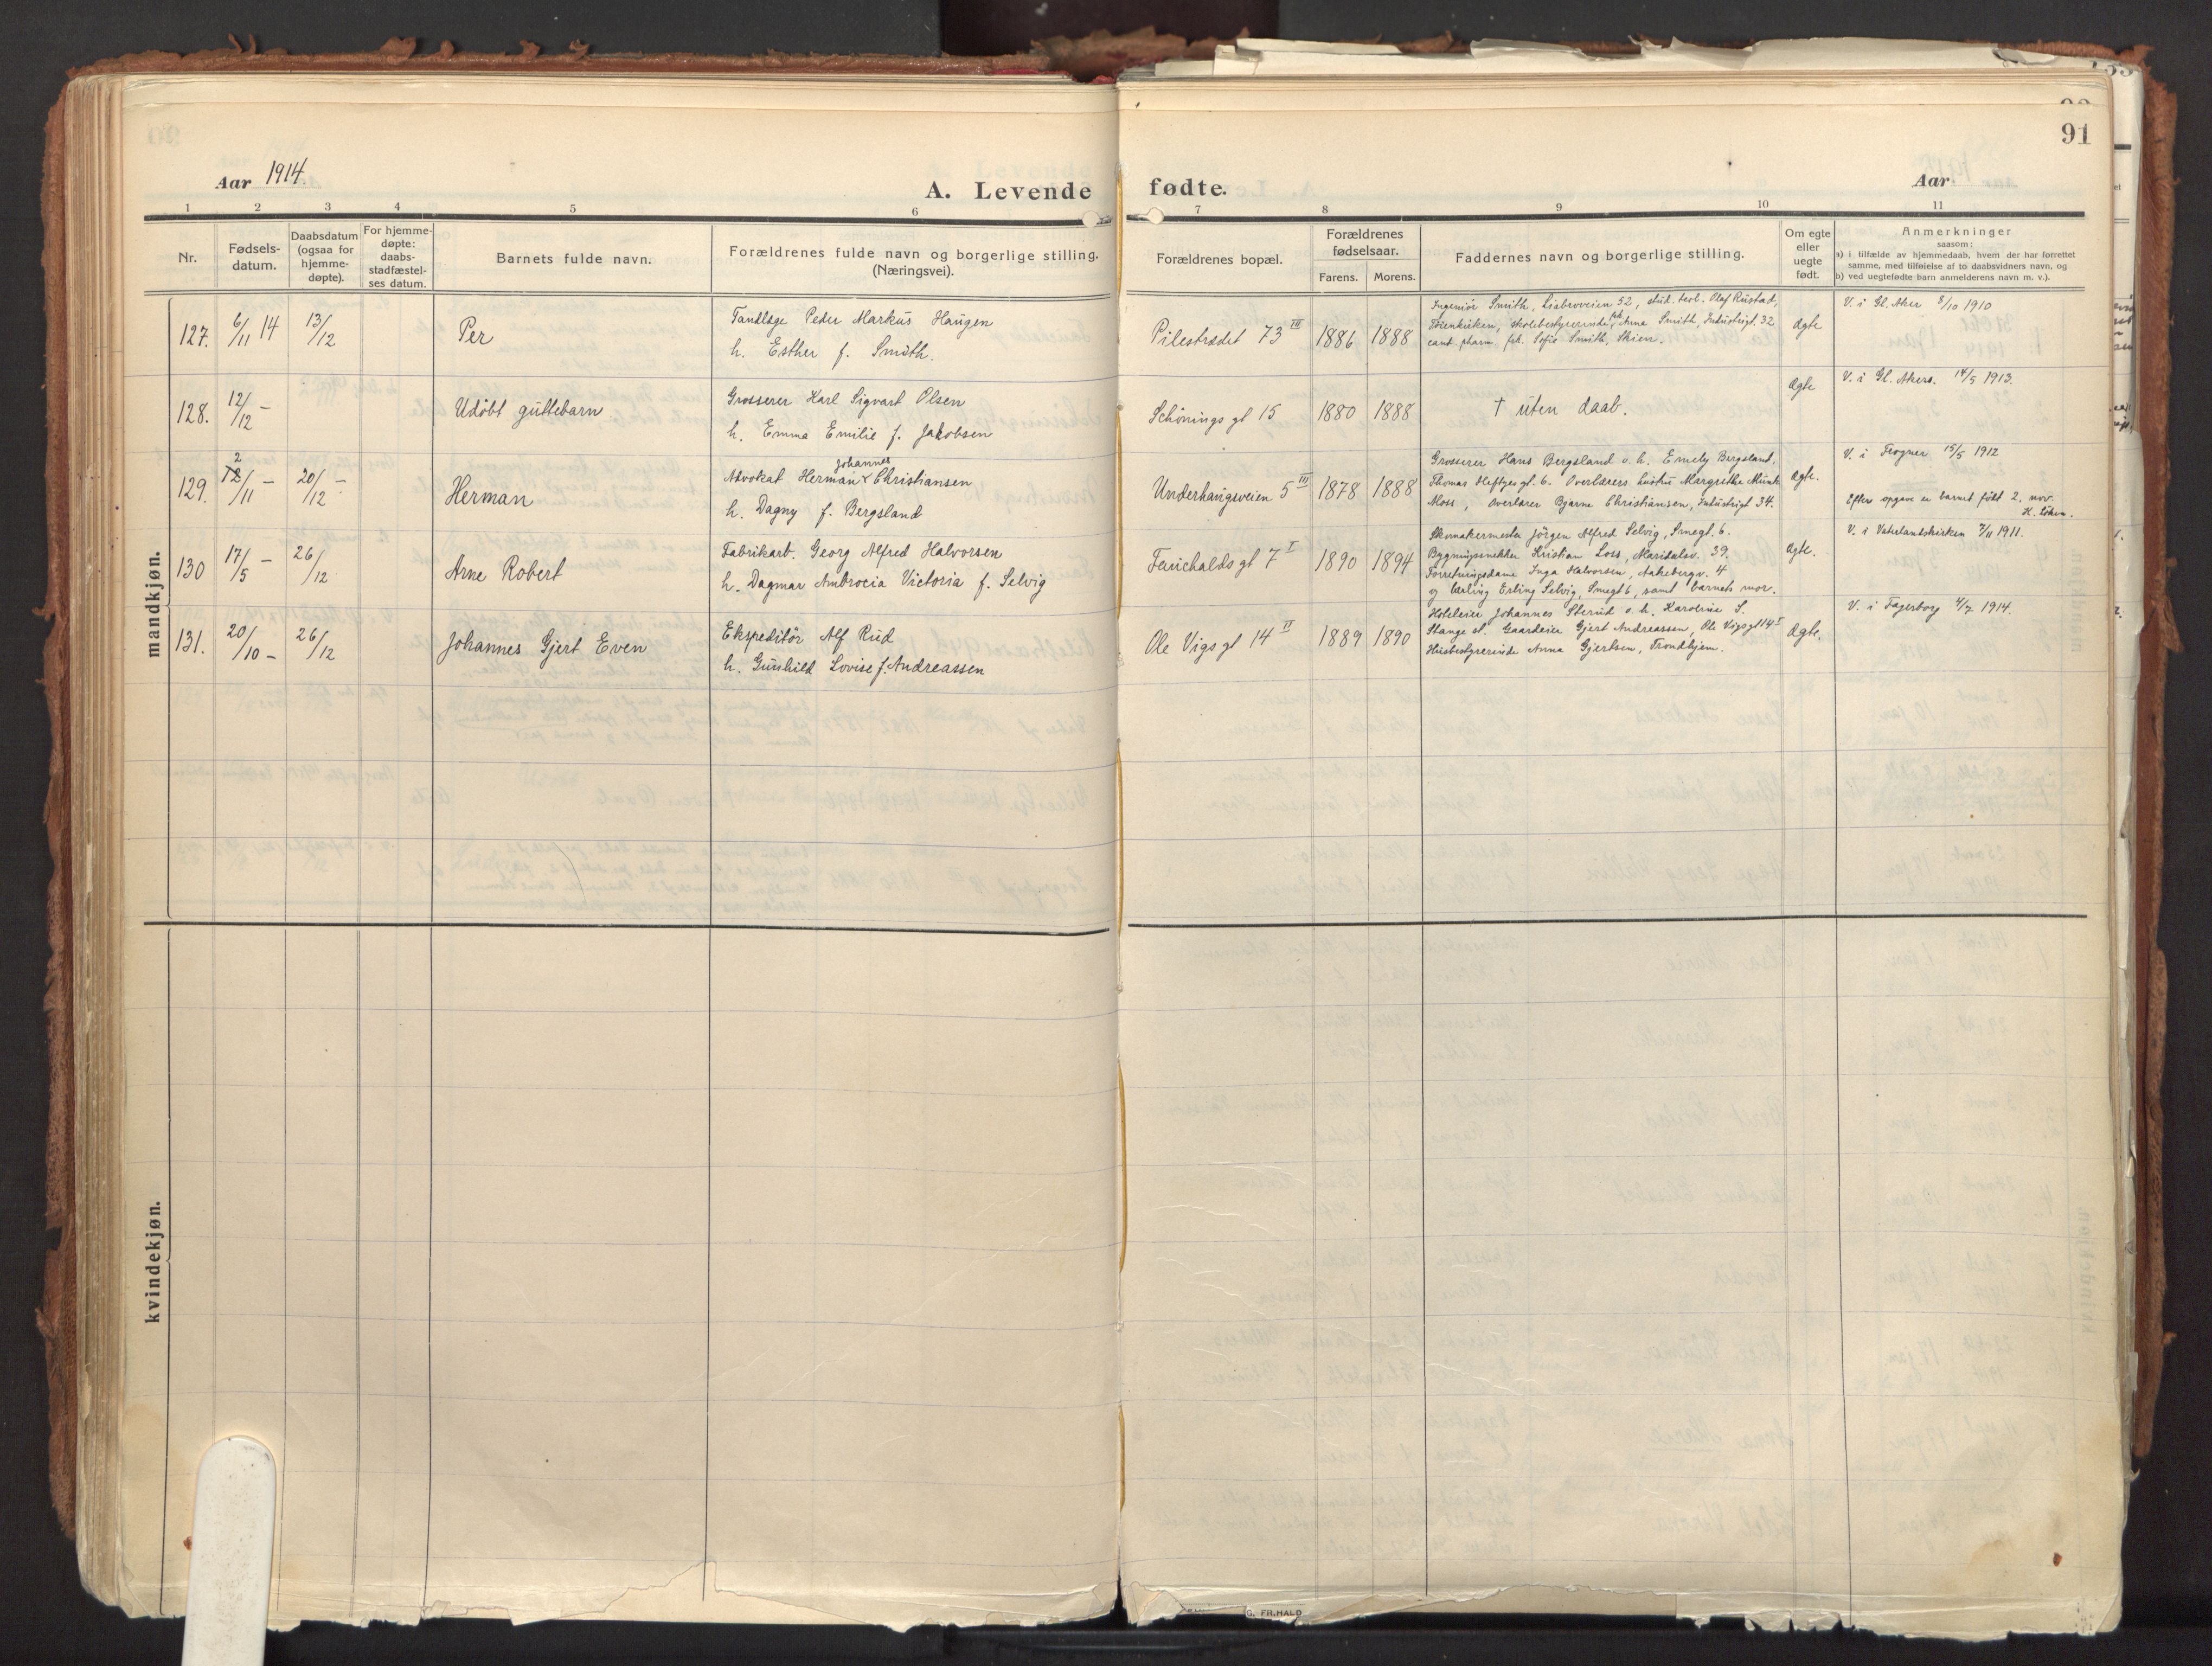 91
Aar 1914.
A. Levende fødte.
Aar
1 2 3 4 5 6 7 8 9 10 11
Nr.
Fødsels-
datum.
Daabsdatum
(ogsaa for
hjemme-
døpte).
For hjemme-
døpte:
daabs-
stadfæstel-
ses datum.
Barnets fulde navn.
Forældrenes fulde navn og borgerlige stilling.
(Næringsvei).
Forældrenes bopæl.
Forældrenes
fødselsaar.
Farens. Morens.
Faddernes navn og borgerlige stilling.
Om egte
eller
uegte
født.
Anmerkninger
saasom:
a) i tilfælde av hjemmedaab, hvem der har forrettet
samme, med tilføielse av to daabsvidners navn, og
b) ved uegtefødte barn anmelderens navn m. v.).
mandkjøn.
127. 6/11 14 13/12 Per
Tandlæge Peder Markus Haugen
h. Esther f. Smith.
Pilestrædet 73 III 1886 1888
Ingeniør Smith, Liabroveien 52, stud. teol. Olaf Rustad,
skolebestyrerinde frk. Anna Smith, Industrigt. 32
cand. pharm. frk. Sofie Smith, Skien.
Ægte
V. i Gl. Aker 8/10 1910
128. 12/12 – Udøbt guttebarn
Grosserer Karl Sigvart Olsen
h. Emma Emilie f. Jakobsen
Schönings gt 15 1880 1888
† uten daab.
Ægte
V. i Gl. Akers. 14/5 1913.
129. 2 12/11 – 20/12 – Herman
Johannes
Advokat Herman Christiansen
h. Dagny f. Bergsland
Underhaugsveien 5 III 1878 1888
Grosserer Hans Bergsland o. h. Emely Bergsland,
Thomas Heftyes gt. 6. Overlærers hustru Margrethe Munk
Moss, Overlærer Bjarne Christiansen, Industrigt 34.
Ægte.
V. i Frogner 15/5 1912
Efter opgave er barnet født 2. nov.
130 17/5 – 26/12 Arne Robert
Fabrikarb. Georg Alfred Halvorsen
h. Dagmar Ambrocia Victoria f. Selvig
Fauchalds gt 7 I 1890 1894
Skomakermester Jörgen Alfred Selvig, Smegt. 6.
Bygningssnekker Kristian Loss, Maridalsv. 39.
Forretningsdame Inga Halvorsen, Aakebergv. 4
og Lærling Erling Selvig, Smegt 6, samt barnets mor.
Ægte.
V. i Vaterlandskirken 7/11 1911.
131. 20/10 – 26/12 Johannes Gjert Even
Ekspeditör Alf Rud
h. Gunhild Lovise f. Andreassen
Ole Vigs gt 14 II 1889 1890
Hoteleier Johannes Sterud o. h. Karoline S.
Stange st. Gaardeier Gjert Andreassen, Ole Vigsgt 14 I
Husbestyrerinde Anna Gjertsen, Trondhjem.
Ægte.
V. i Fagerborg 4/7 1914.
kvindekjøn.
G. FR. HALD